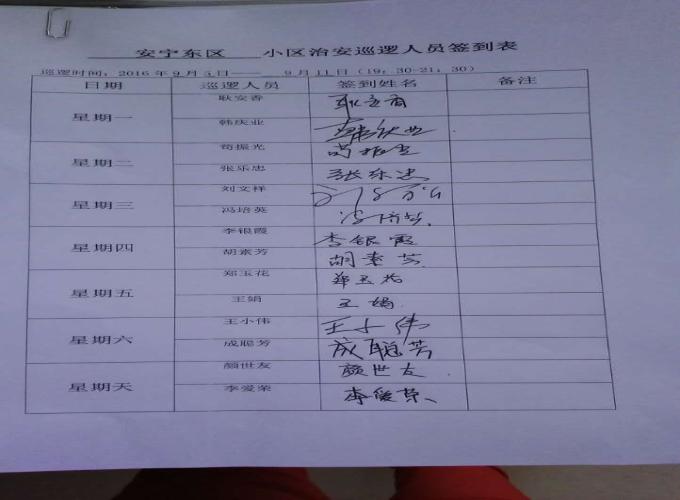 安宁东区 小区治安巡逻人员签到表
巡逻时间：2016年9月5日—— 9月11日（19：30-21：30）
日期 巡逻人员 签到姓名 备注
星期一 耿安香
韩庆业 韩庆业
星期二 荀振光
张乐忠 张乐忠
星期三 刘文祥
冯培英 冯培英
星期四 李银霞 李银霞
胡素芳 胡素芳
星期五 郑玉花 郑玉花
王娟 王娟
星期六 王小伟 王小伟
成聪芳 成聪芳
星期天 颜世友 颜世友
李爱荣 李爱荣